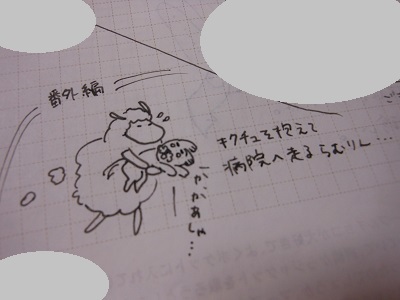 番外編
キクチュを抱えて
病院へ走るらむりん…
かかあしゃ…